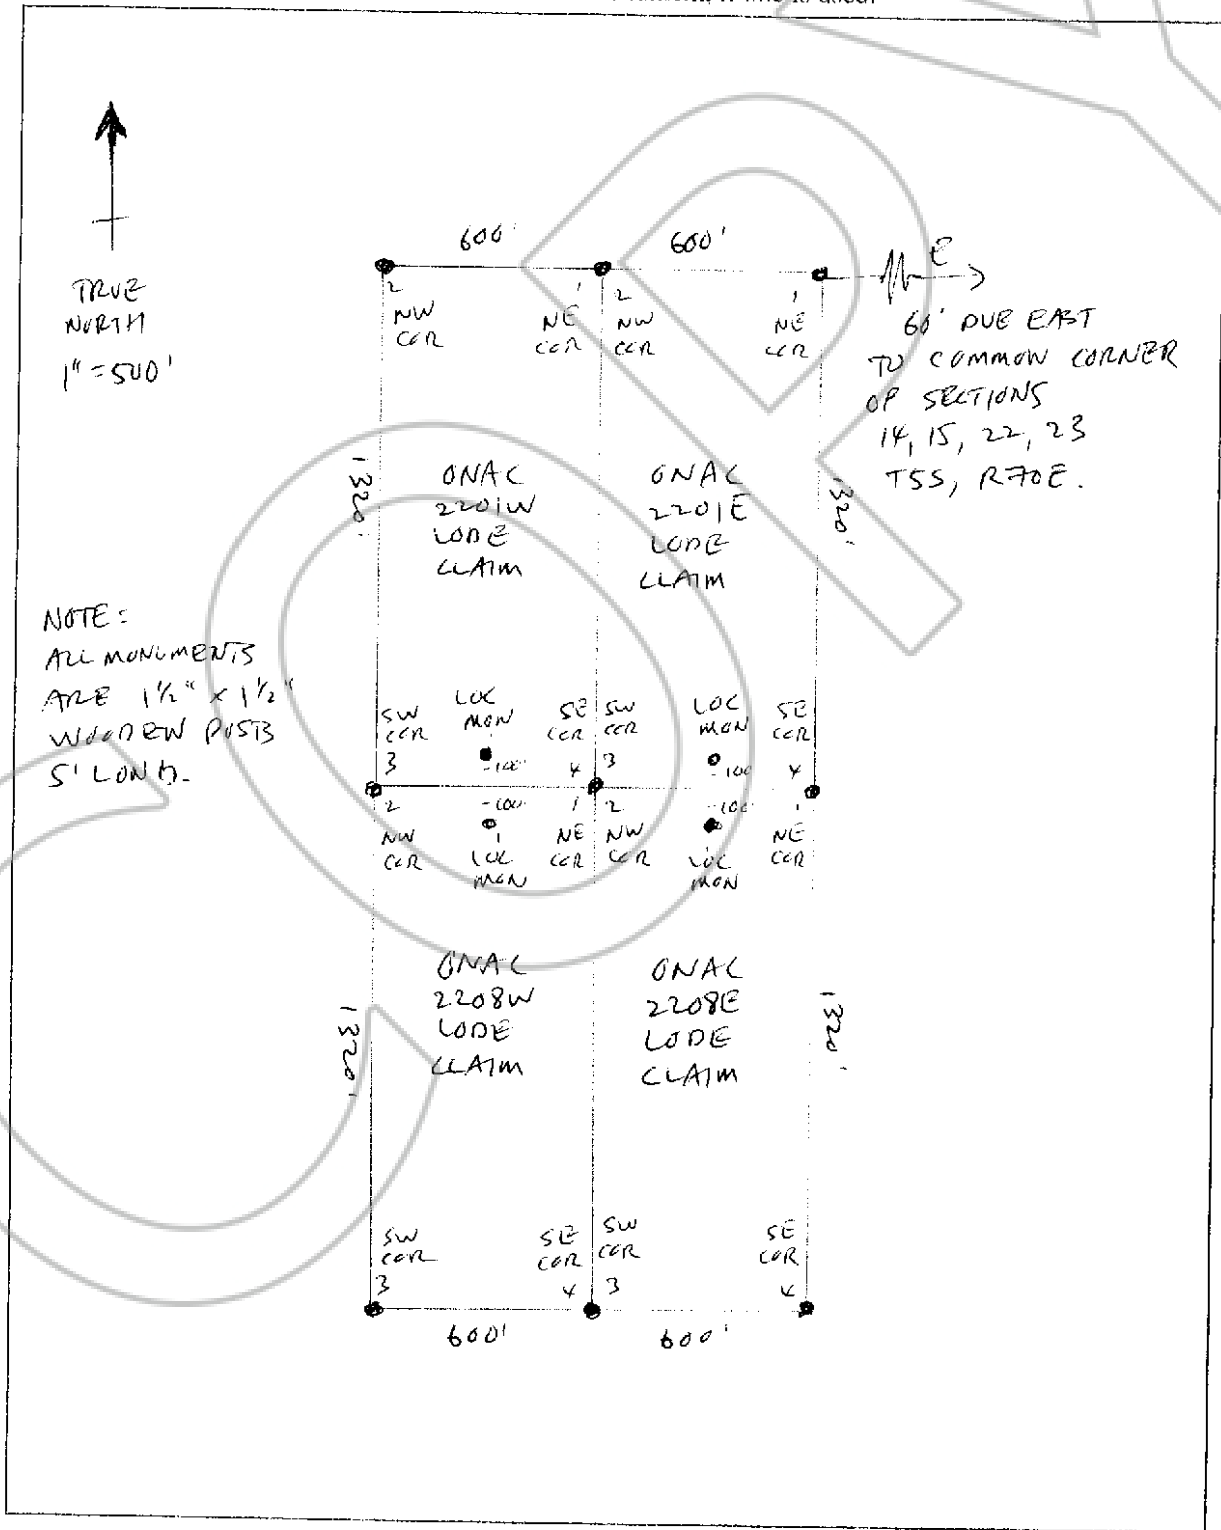 600'
600'
TRUE
NORTH
1" = 500'
E
60' DUE EAST
TO COMMON CORNER
OF SECTIONS
14, 15, 22, 23
T5S, R70E.
2
NW
COR
1
NE
COR
2
NW
COR
1
NE
COR
1320'
ONAC
2201W
LODE
CLAIM
ONAC
2201E
LODE
CLAIM
1320'
NOTE:
ALL MONUMENTS
ARE 1 1/2" x 1 1/2"
WOODEN POSTS
5' LONG.
SW
COR
3
LOC
MON
-100'
SE
COR
4
SW
COR
3
LOC
MON
-100
SE
COR
4
2
NW
COR
-100'
LOC
MON
1
NE
COR
2
NW
COR
-100
LOC
MON
1
NE
COR
ONAC
2208W
LODE
CLAIM
ONAC
2208E
LODE
CLAIM
1320'
1320'
SW
COR
3
SE
COR
4
SW
COR
3
SE
COR
4
600'
600'
COPY